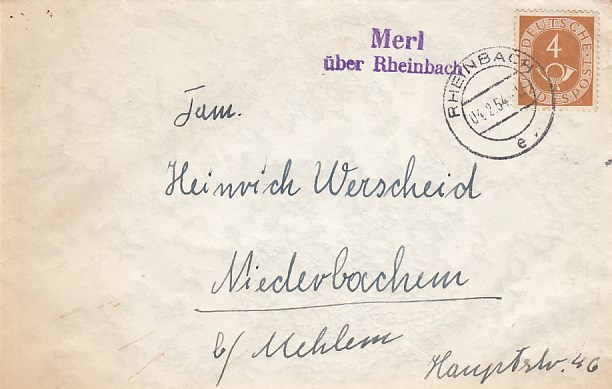 Merl
über Rheinbach
DEUTSCHE BUNDESPOST
4
RHEINBACH
04.2.54
e
Fam.
Heinrich Werscheid
Niederbachem
b/ Mehlem
Hauptstr. 46